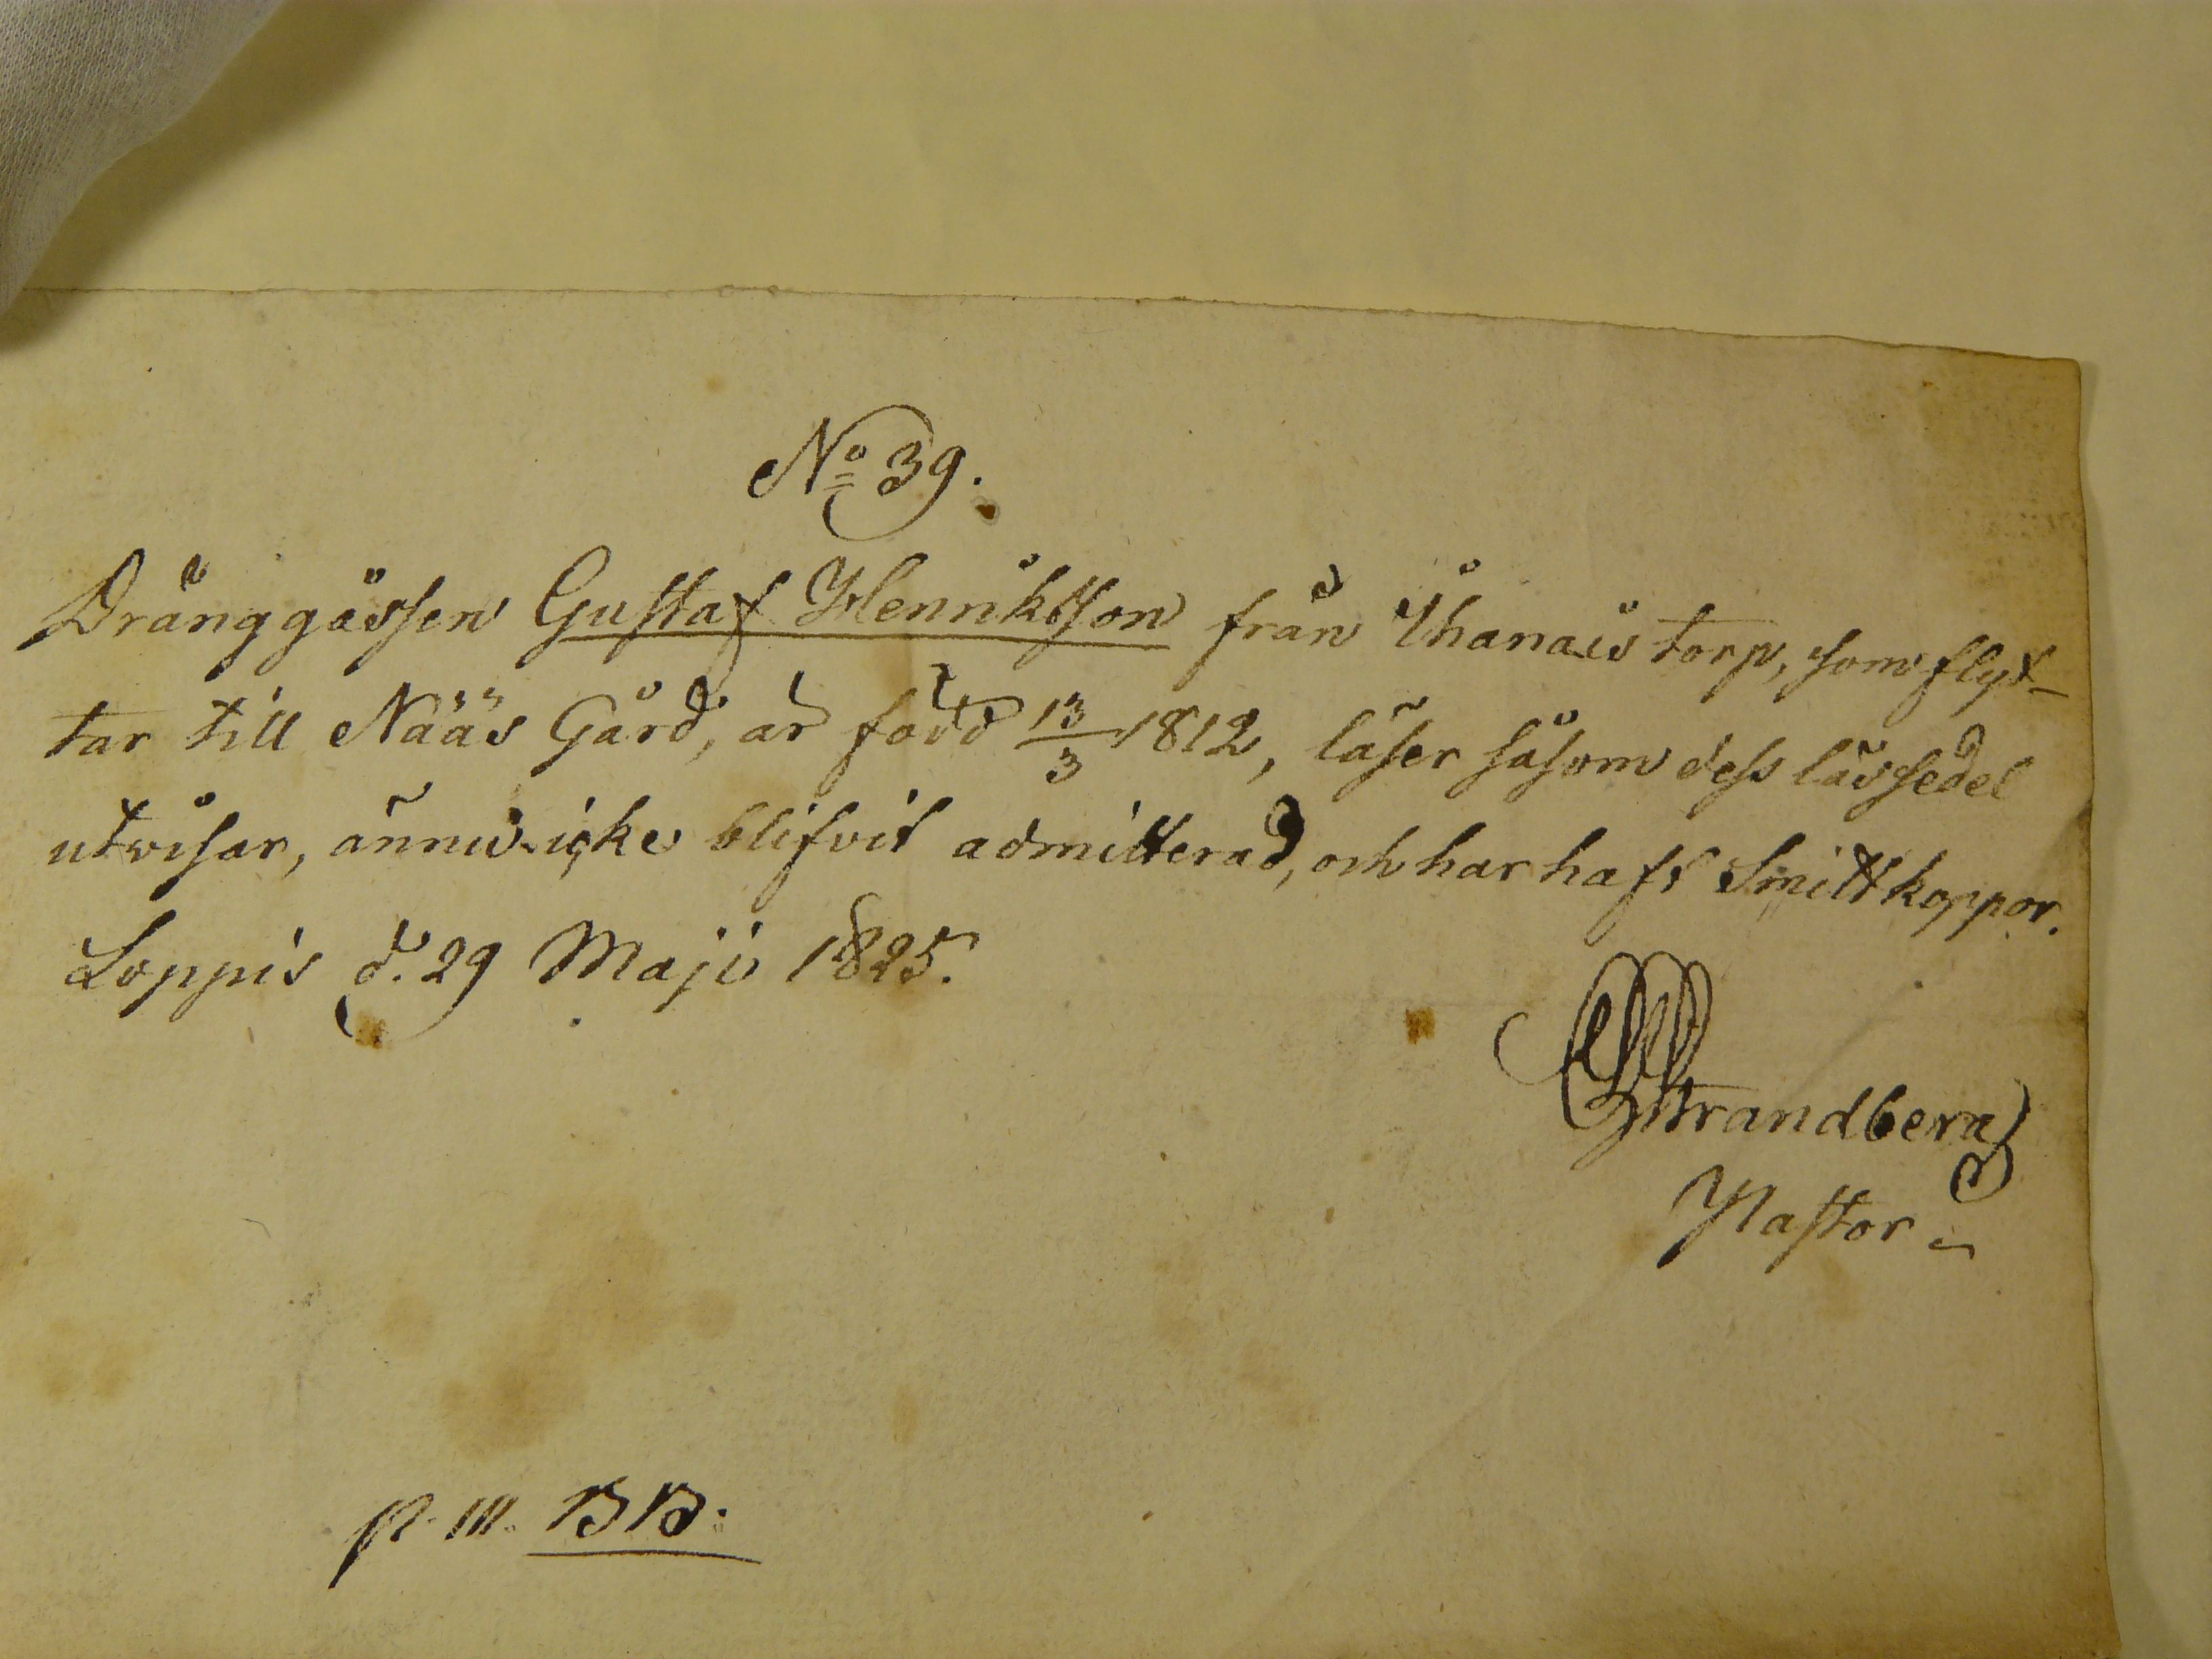 No 39.
Dränggåssen Gustaf Henriksson från Uhanais torp, som flyt-
tar till Nääs Gård, är född 13/3 1812, läser såsom dess lässedel
utvisar, ännu icke blifvit admitterad, och har haft Smittkoppor.
Loppis d. 29 Maji 1825.
Strandberg
Pastor
p. m.